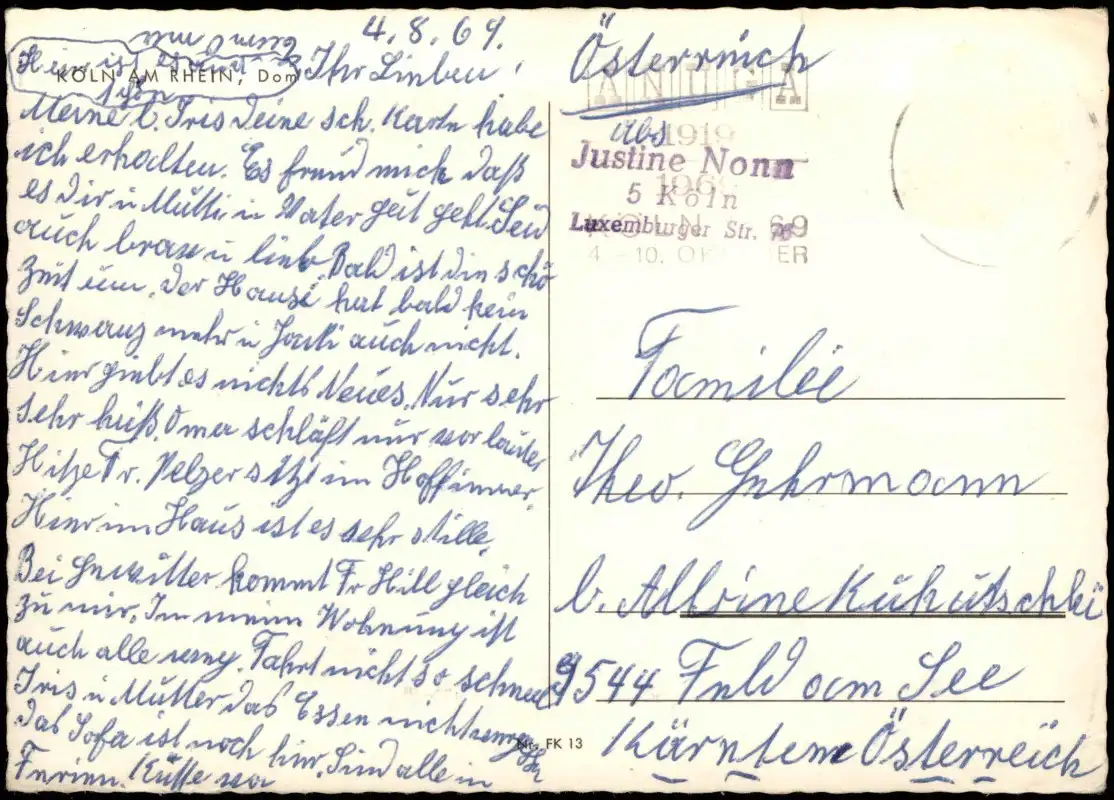 4.8.69.
KÖLN AM RHEIN, Dom
Hier ist es schön
Ihr Lieben!
Meine l. Iris Deine sch. Karte habe
ich erhalten. Es freud mich daß
es dir u Mutti u Vater gut geht. Seid
auch brav u lieb. Bald ist die schö
Zeit um. Der Hansi hat bald kein
Schwanz mehr u Jacki auch nicht.
Hier giebt es nichts Neues. Nur sehr
sehr heiß. Oma schläft nur vor lauter
Hitze Fr. Pelzer sitzt im Hoffimmer.
Hier im Haus ist es sehr stille.
Bei Gewitter kommt Fr Hill gleich
zu mir. Im meine Wohnung ist
auch alle weng. Fahrt nicht so schnell
Iris u Mutter das Essen nicht
Das Sofa ist noch hier. Sind alle in
Ferien. Küsse
Nr. FK 13
Österreich
ANUGA
1919
1969
KÖLN 69
4.-10. OKTOBER
Abs
Justine Nonn
5 Köln
Luxemburger Str.
Familie
Theo. Gehrmann
b. Albine
9544 Feld am See
Kärnten Österreich